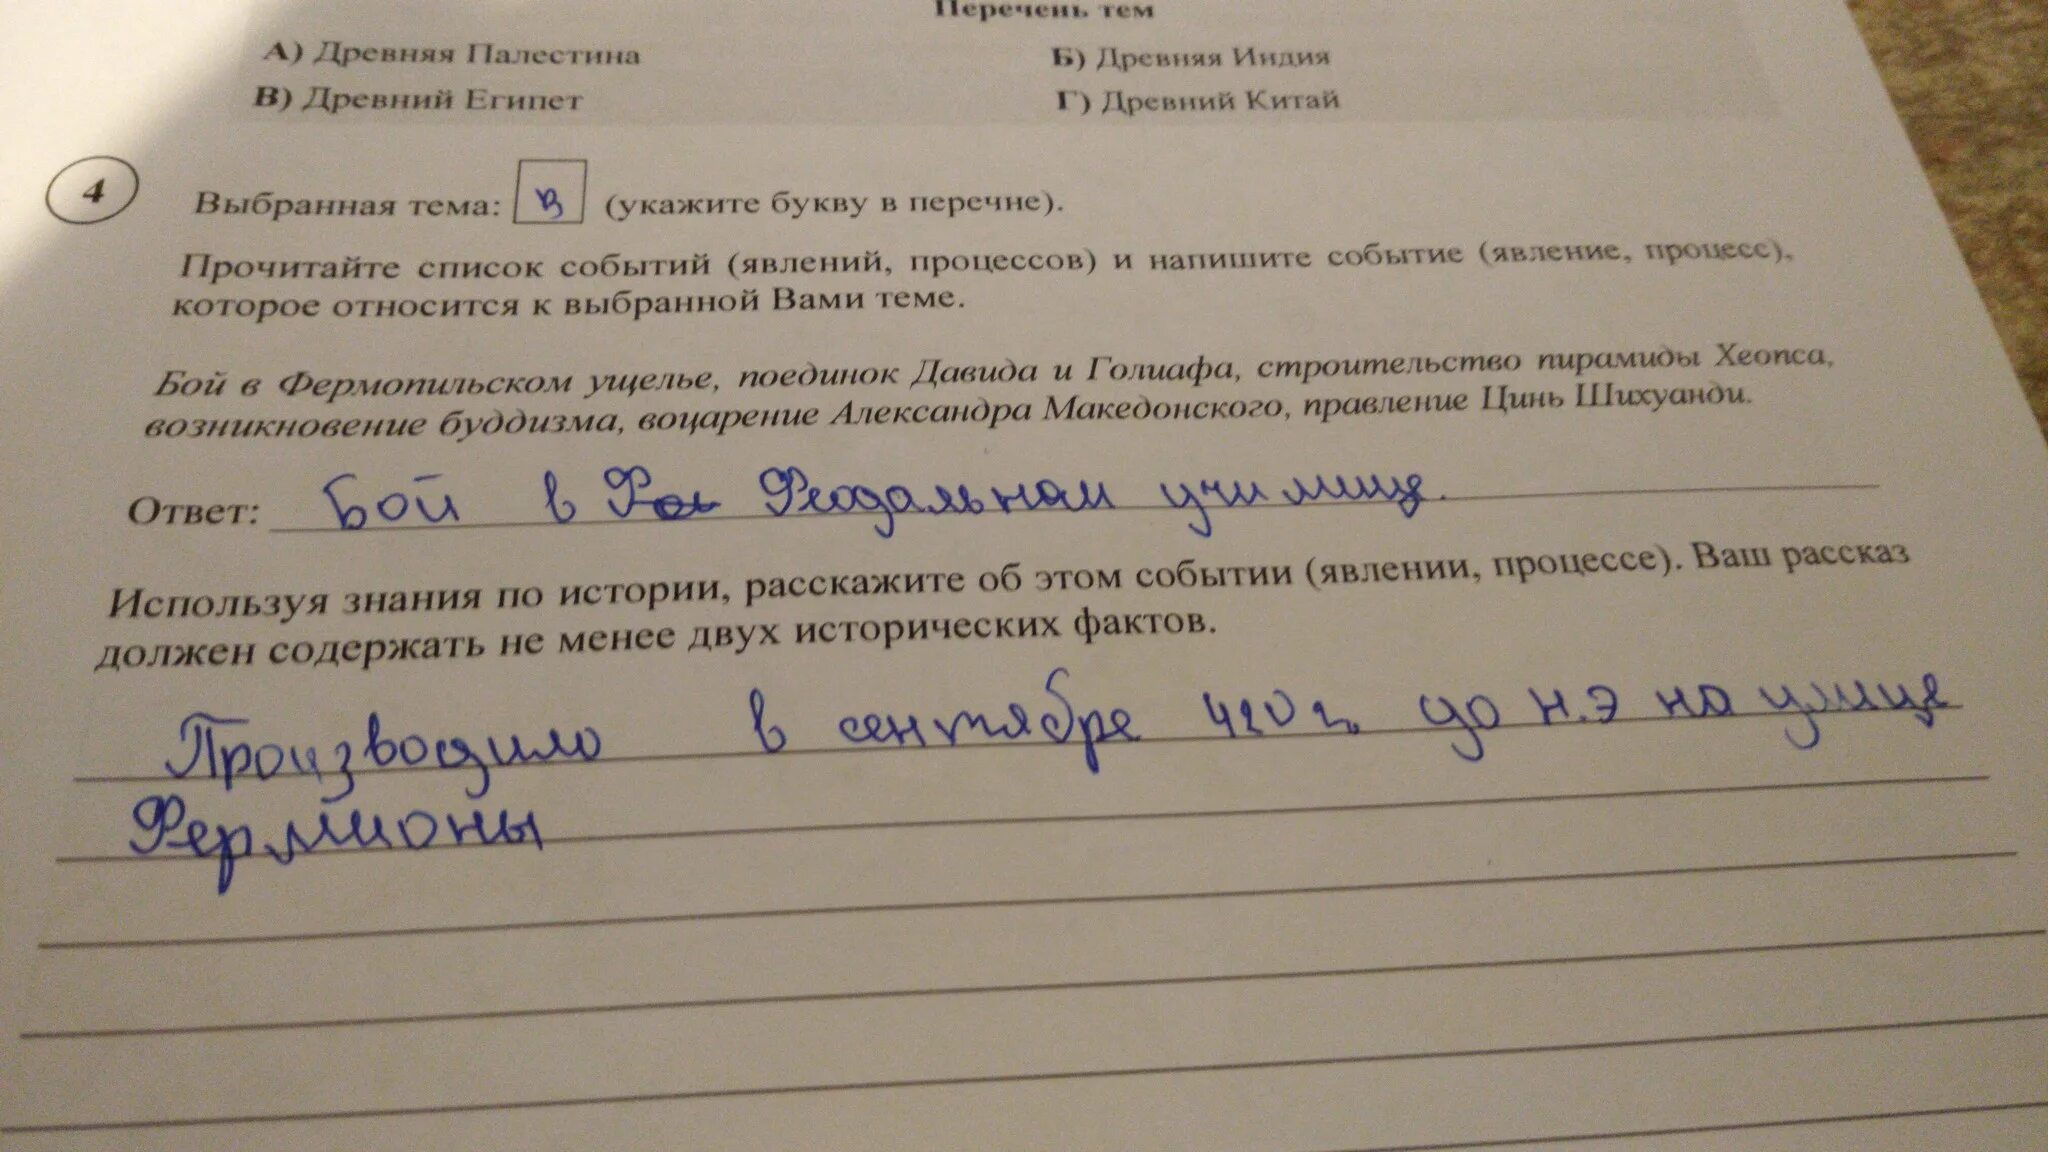 Перечень тем
А) Древняя Палестина Б) Древняя Индия
В) Древний Египет Г) Древний Китай
4 Выбранная тема: В (укажите букву в перечне).
Прочитайте список событий (явлений, процессов) и напишите событие (явление, процесс),
которое относится к выбранной Вами теме.
Бой в Фермопильском ущелье, поединок Давида и Голиафа, строительство пирамиды Хеопса,
возникновение буддизма, воцарение Александра Македонского, правление Цинь Шихуанди.
Ответ: Бой в Феодальном училище.
Используя знания по истории, расскажите об этом событии (явлении, процессе). Ваш рассказ
должен содержать не менее двух исторических фактов.
Производило в сентябре 420 г. до н.э на улице
Фермионы